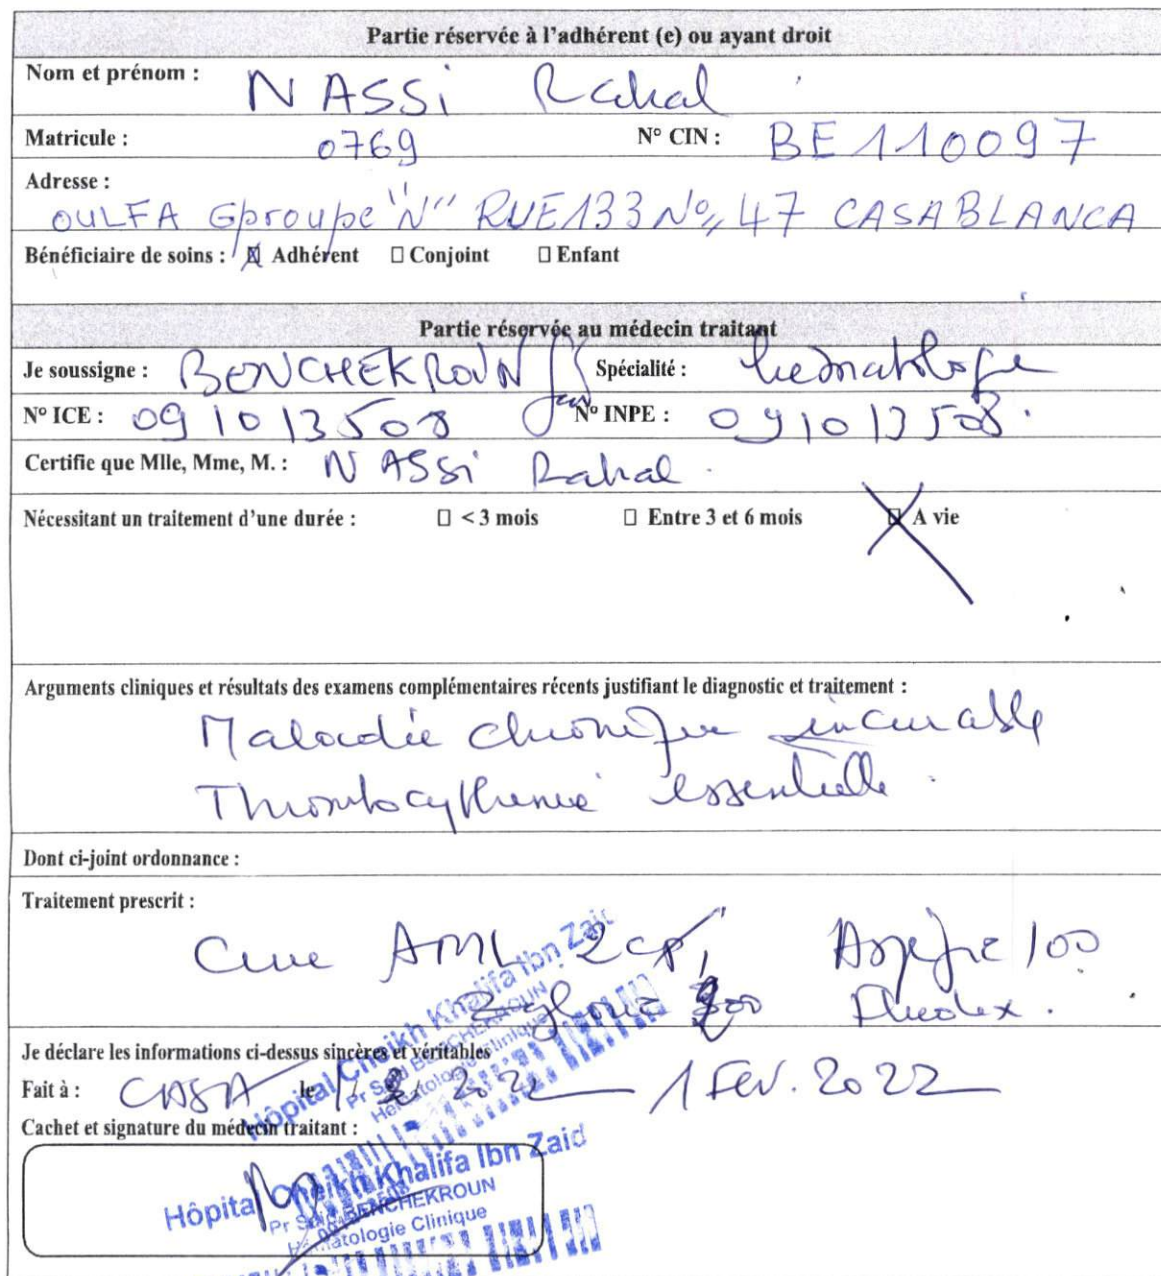 Partie réservée à l'adhérent (e) ou ayant droit
Nom et prénom : NASSi Rahal
Matricule : 0769 N° CIN : BE 110097
Adresse :
OULFA Gproupe "N" RUE 133 N° 47 CASABLANCA
Bénéficiaire de soins : ☒ Adhérent ☐ Conjoint ☐ Enfant
Partie réservée au médecin traitant
Je soussigne : BENCHEKROUN Spécialité : hematologie
N° ICE : 091013508 N° INPE : 091013508.
Certifie que Mlle, Mme, M. : NASSi Rahal.
Nécessitant un traitement d'une durée : ☐ < 3 mois ☐ Entre 3 et 6 mois ☒ A vie
Arguments cliniques et résultats des examens complémentaires récents justifiant le diagnostic et traitement :
Maladie chronique incurable
Thrombocythemie essentielle.
Dont ci-joint ordonnance :
Traitement prescrit :
AML 2 cp, Aspegic 100
Zyloric Fludex.
Je déclare les informations ci-dessus sincères et véritables
Fait à : CASA le 1 Fev. 2022
Cachet et signature du médecin traitant :
Hôpital Cheikh Khalifa Ibn Zaid
Pr Said BENCHEKROUN
Hématologie Clinique
Hôpital Cheikh Khalifa Ibn Zaid
Pr Said BENCHEKROUN
Hématologie Clinique